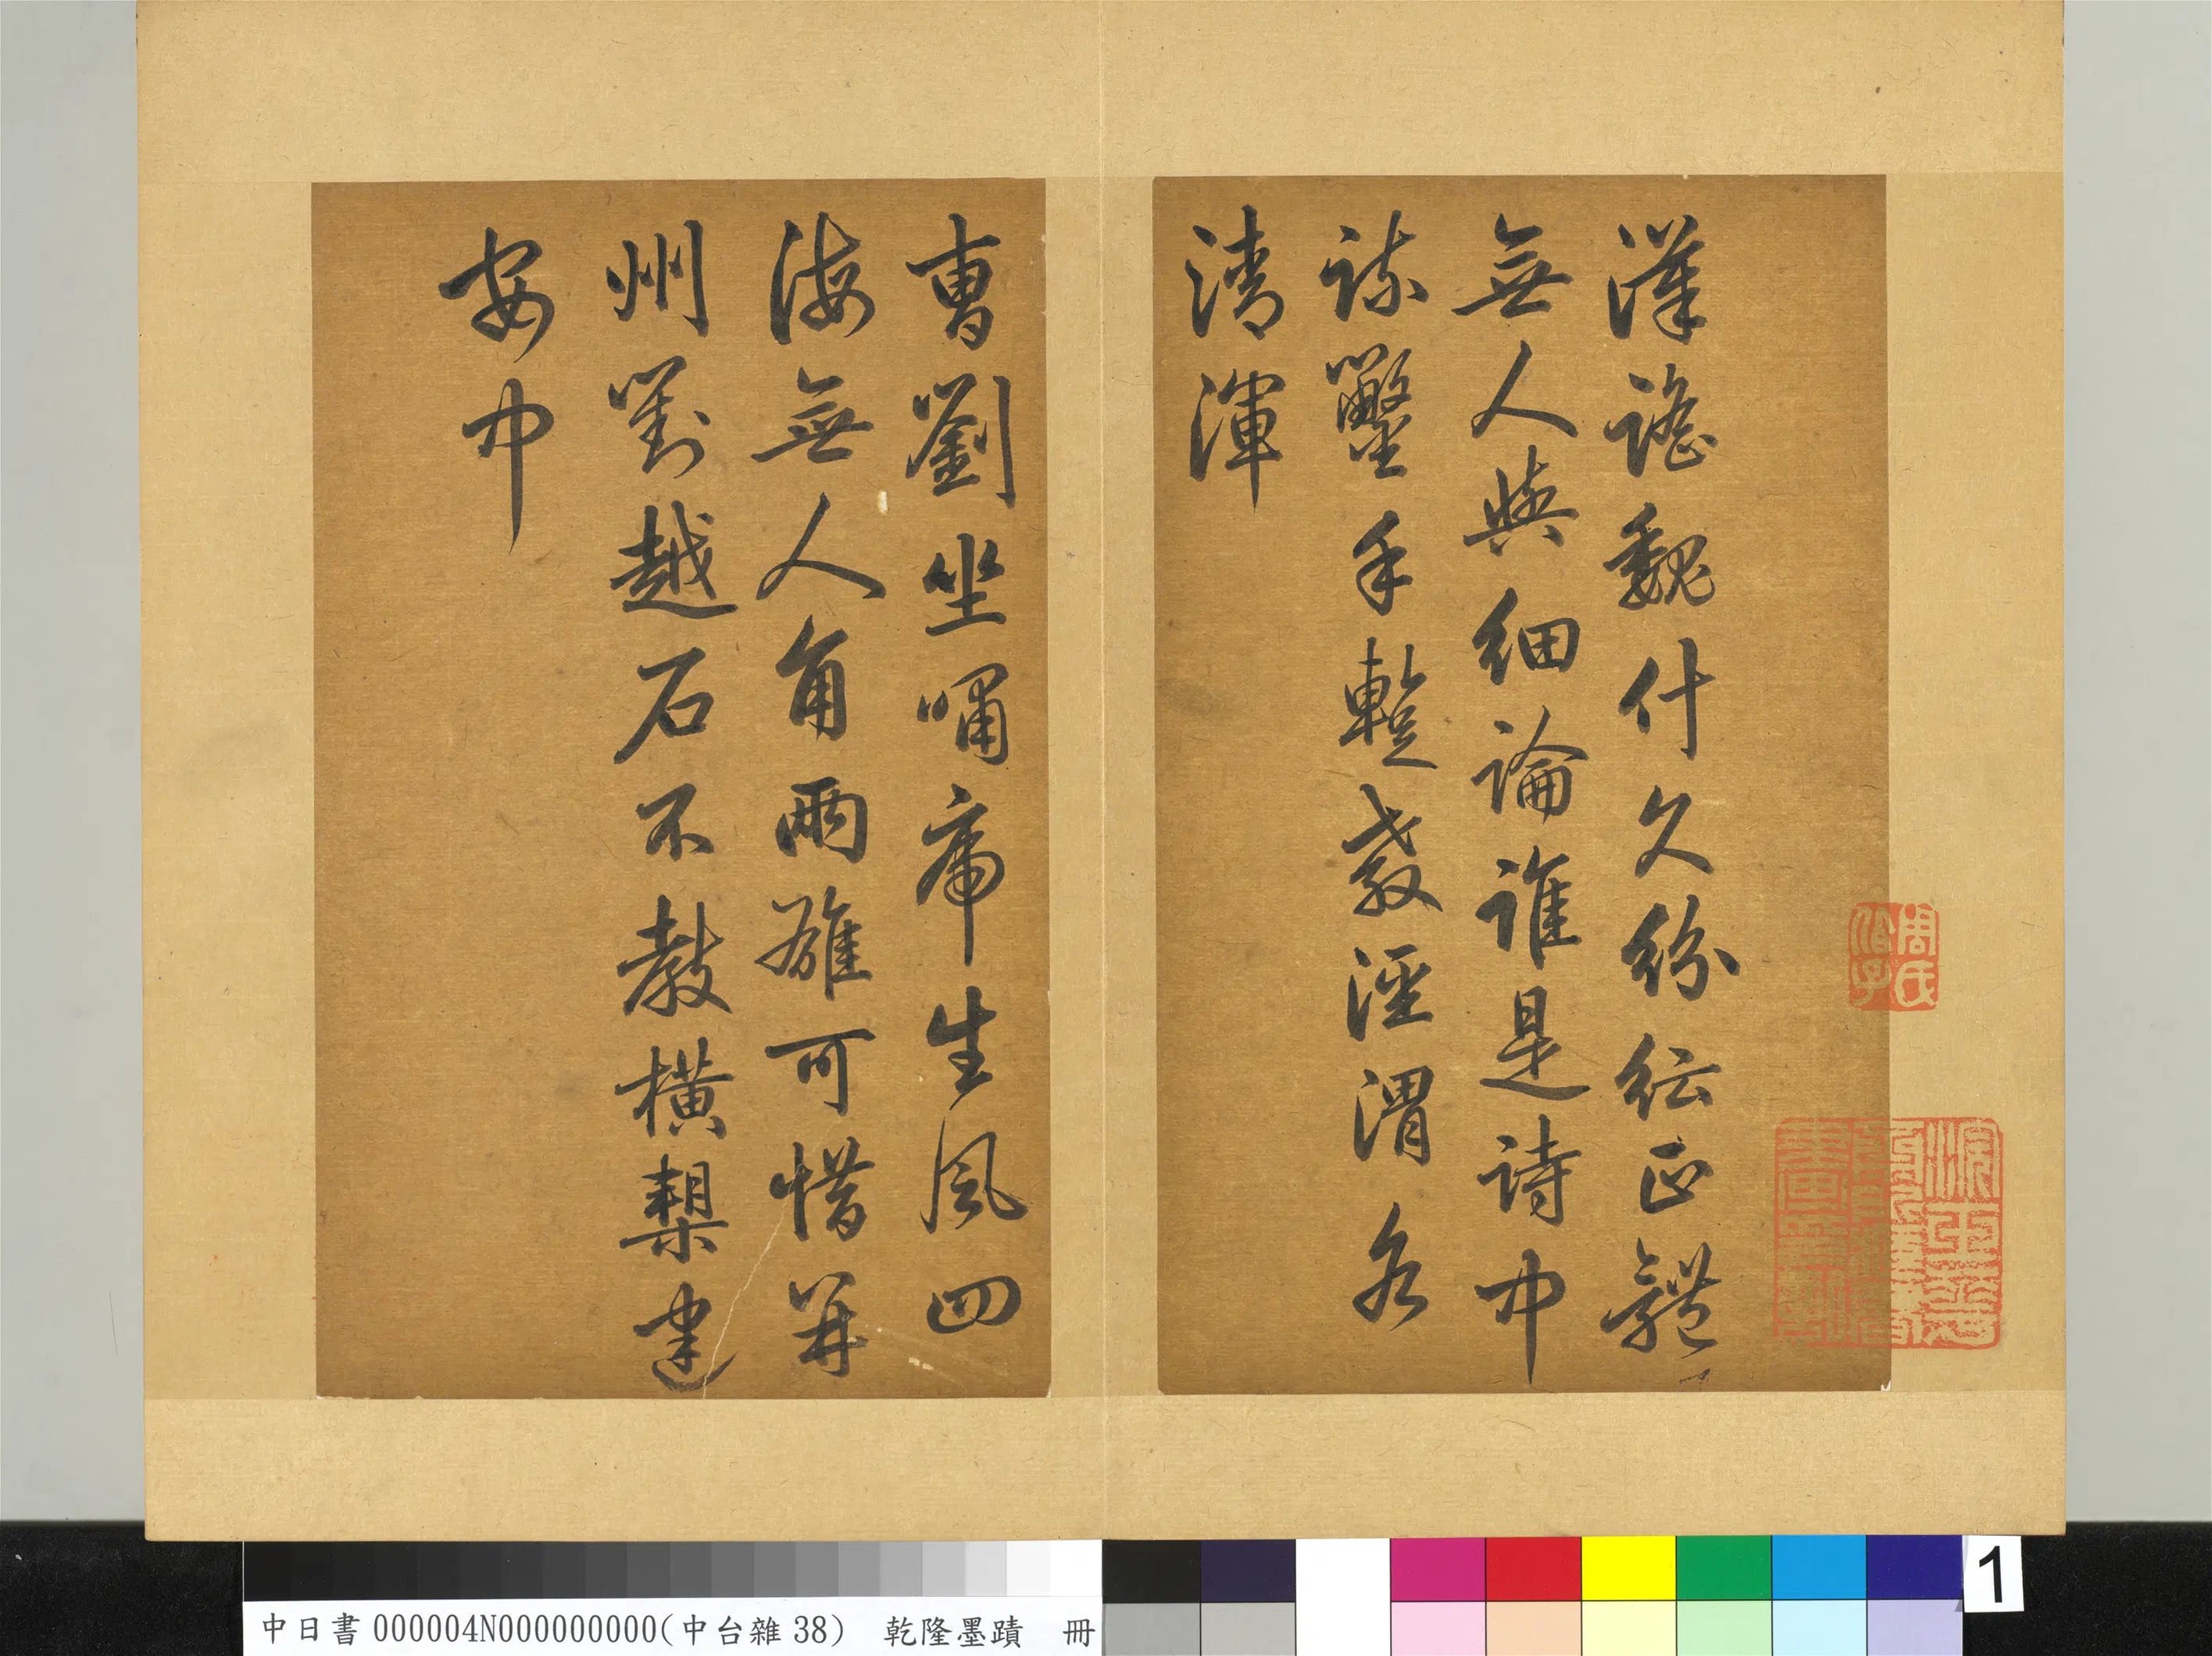 漢謠魏什久紛紜正體
無人與細論誰是詩中
疏鑿手暫教涇渭各
清渾
曹劉坐嘯虎生風四
海無人角兩雄可惜并
州劉越石不教橫槊建
安中
周氏
中日書000004N000000000(中台雜38) 乾隆墨蹟 冊
1